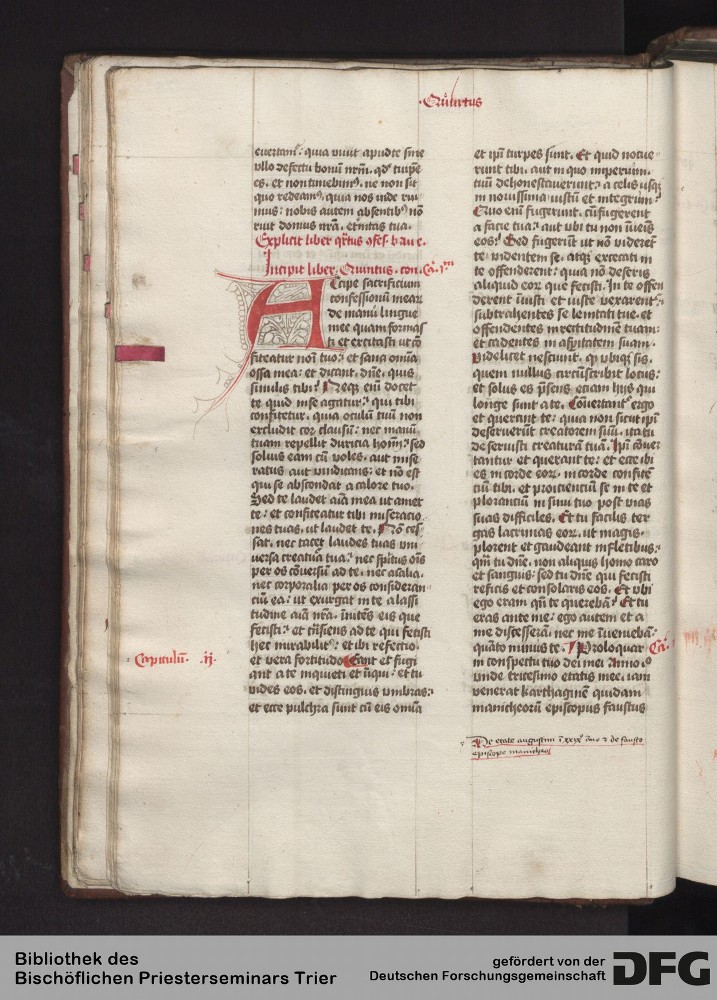 Quartus
euertamᷣ: quia viuit apud te sine
vllo defectu bonū nrm̄. qd̓ tu ipe
es. et non timebimꝰ. ne non sit
quo redeamꝰ. quia nos inde rui
mus: nobis autem absentibꝰ nō
ruit domus nr̄a. et̓nitas tua.
Explicit liber qr̓tus
Incipit liber. Quintus. con. Ca. jm
Accipe sacrificium
confessionū meaꝝ
de manu lingue
mee quam formas
ti et excitasti ut cō
fiteatur noī tuo: et sana om̄ia
ossa mea: et dicant. dn̄e. quis
similis tibi? Neqꝫ enī docet
te quid in se agatur: qui tibi
confitetur. quia oculū tuū non
excludit cor clausū: nec manū
tuam repellit duricia hoīm: sed
soluis eam cū voles. aut mise
ratus aut vindicans: et nō est
qui se abscondat a calore tuo.
Sed te laudet aīa mea ut amet
te: et confiteatur tibi miseracio
nes tuas. ut laudet te. Nō ces
sat. nec tacet laudes tuas vni
uersa creatura tua: nec spūtus oīs
per os cōuersū ad te. nec aīalia.
nec corporalia per os consideran
ciū ea: ut exurgat in te a lassi
tudine aīa nr̄a. īnitēs eis que
fecisti: et trn̄siens ad te qui fecisti
hec mirabilitʼ: et ibi refectio
et vera fortitudo Eant et fugi
Capitulū. ij.
ant a te inquieti et iniqui: et tu
vides eos. et distinguis vmbras:
et ecce pulchra sunt cū eis om̄ia
et ipī turpes sunt. Et quid nocue
runt tibi. aut in quo imperium
tuū dehonestauerunt: a celis usqꝫ
in nouissima iustū et integrum
Quo enī fugerunt. cū fugerent
a facie tua: aut vbi tu non īuenis
eos: Sed fugerūt ut nō viderēt
te videntem se. atqꝫ excecati in
te offenderent: quia nō deseris
aliquid eoꝝ que fecisti. In te offen
derent iīusti et iuste vexarent:
subtrahentes se lenitati tue. et
offendentes in rectitudinē tuam:
et cadentes in asperitatem suam.
Videlicet nesciunt. qꝫ vbiqꝫ sis.
quem nullus circūscribit locus:
et solus es p̄sens etiam hijs qui
longe fiunt a te. Cōuertantᷣ ergo
et querant te: quia non sicut ipī
deseruerūt creatorem suū. ita tu
deseruisti creaturā tuā. Ipī cōuer
tantur et querant te: et ecce ibi
es in corde eoꝝ. in corde confitē
ciū tibi. et proicienciū se in te et
ploranciū in sinu tuo post vias
suas difficiles. Et tu facilis ter
gas lacrimas eoꝝ. ut magis
plorent et gaudeant in fletibus:
qm̄ tu dn̄e. non aliquis homo caro
et sanguis: sed tu dn̄e qui fecisti
reficis et consolaris eos. Et vbi
ego eram qn̄ te querebā? Et tu
eras ante me: ego autem et a
me discesserā. nec me īueniebā:
quāto minus te. Proloquar
Ca.
in conspectu tuo dei mei Anno
vnde tricesimo etatis mee. iam
venerat karthaginē quidam
manicheorū episcopus faustus
De etate augustini ī xxix āno et de fausto
episcopo manicheoꝝ
Bibliothek des
Bischöflichen Priesterseminars Trier
gefördert von der
Deutschen Forschungsgemeinschaft
DFG